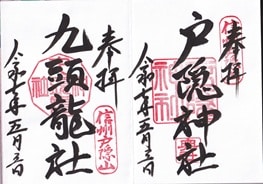 奉拝
戸隠神社
令和 年五月 日
奉拝
信州戸隠山
九頭龍社
令和 年五月 日